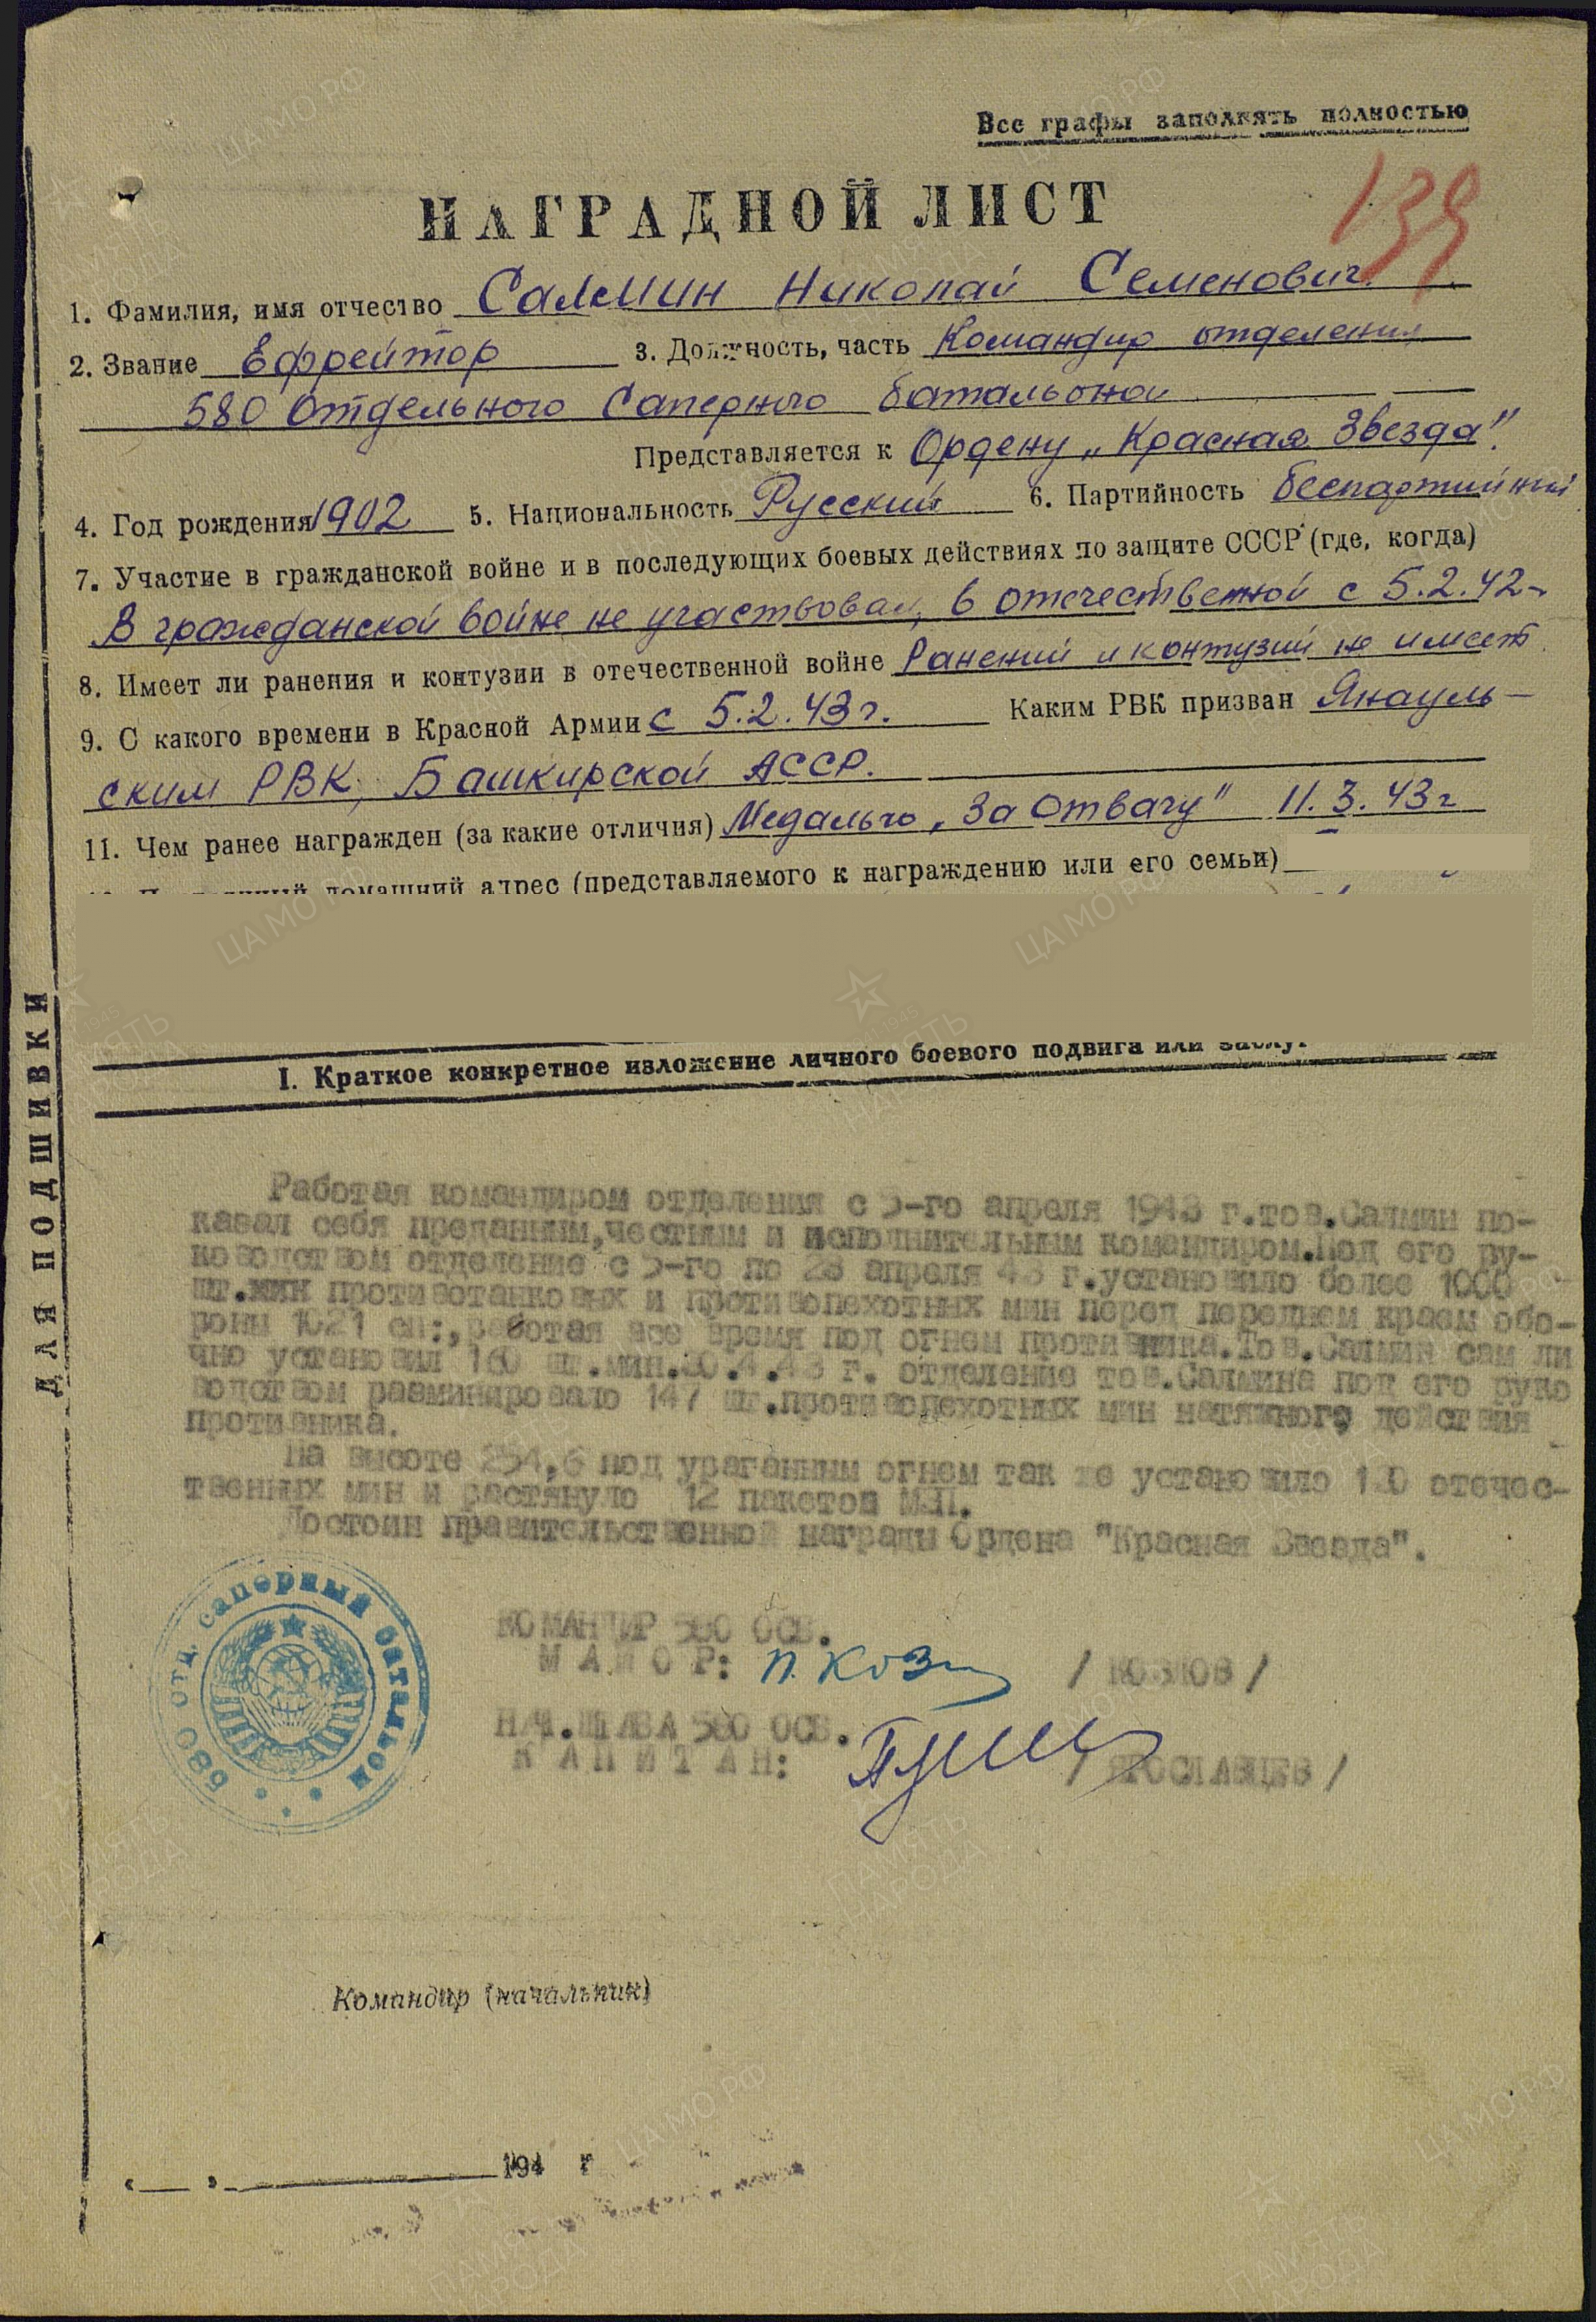 Все графы заполнять полностью
НАГРАДНОЙ ЛИСТ
139
1. Фамилия, имя отчество Салмин Николай Семенович
2. Звание Ефрейтор 3. Должность, часть Командир отделения
580 Отдельного Саперного батальона
Представляется к Ордену „Красная Звезда".
4. Год рождения 1902 5. Национальность Русский 6. Партийность беспартийный
7. Участие в гражданской войне и в последующих боевых действиях по защите СССР (где, когда)
В гражданской войне не участвовал, в отечественной с 5.2.42-
8. Имеет ли ранения и контузии в отечественной войне Ранений и контузий не имеет
9. С какого времени в Красной Армии с 5.2.43г. Каким РВК призван Янауль-
ским РВК, Башкирской АССР.
11. Чем ранее награжден (за какие отличия) Медалью „За Отвагу" 11.3.43г
домашний адрес (представляемого к награждению или его семьи)
I. Краткое конкретное изложение личного боевого подвига или
Работая командиром отделения с 5-го апреля 1943 г.тов.Салмин по-
казал себя преданным,честным и исполнительным командиром.Под его ру-
ководством отделение с 5-го по 28 апреля 43 г.установило более 1000
шт.мин противотанковых и противопехотных мин перед переднем краем обо-
роны 1021 сп:,работая все время под огнем противника.Тов.Салмин сам ли
чно установил 160 шт.мин. г. отделение тов.Салмина под его руко
водством разминировало 147 шт.противопехотных мин натяжного действия
противника.
На высоте 254,6 под ураганным огнем так же установило отечес-
твенных мин и растянуло 12 пакетов МЗП.
Достоин правительственной награды Ордена "Красная Звезда".
КОМАНДИР 580 ОСБ.
МАЙОР: П. Коз /КОЗЛОВ/
НАЧ.ШТАБА 580 ОСБ.
КАПИТАН: /ЯРОСЛАВЦЕВ/
580 отд. саперный батальон
Командир (начальник)
„___"_____________194 г
ДЛЯ ПОДШИВКИ
ЦАМО РФ
ПАМЯТЬ НАРОДА